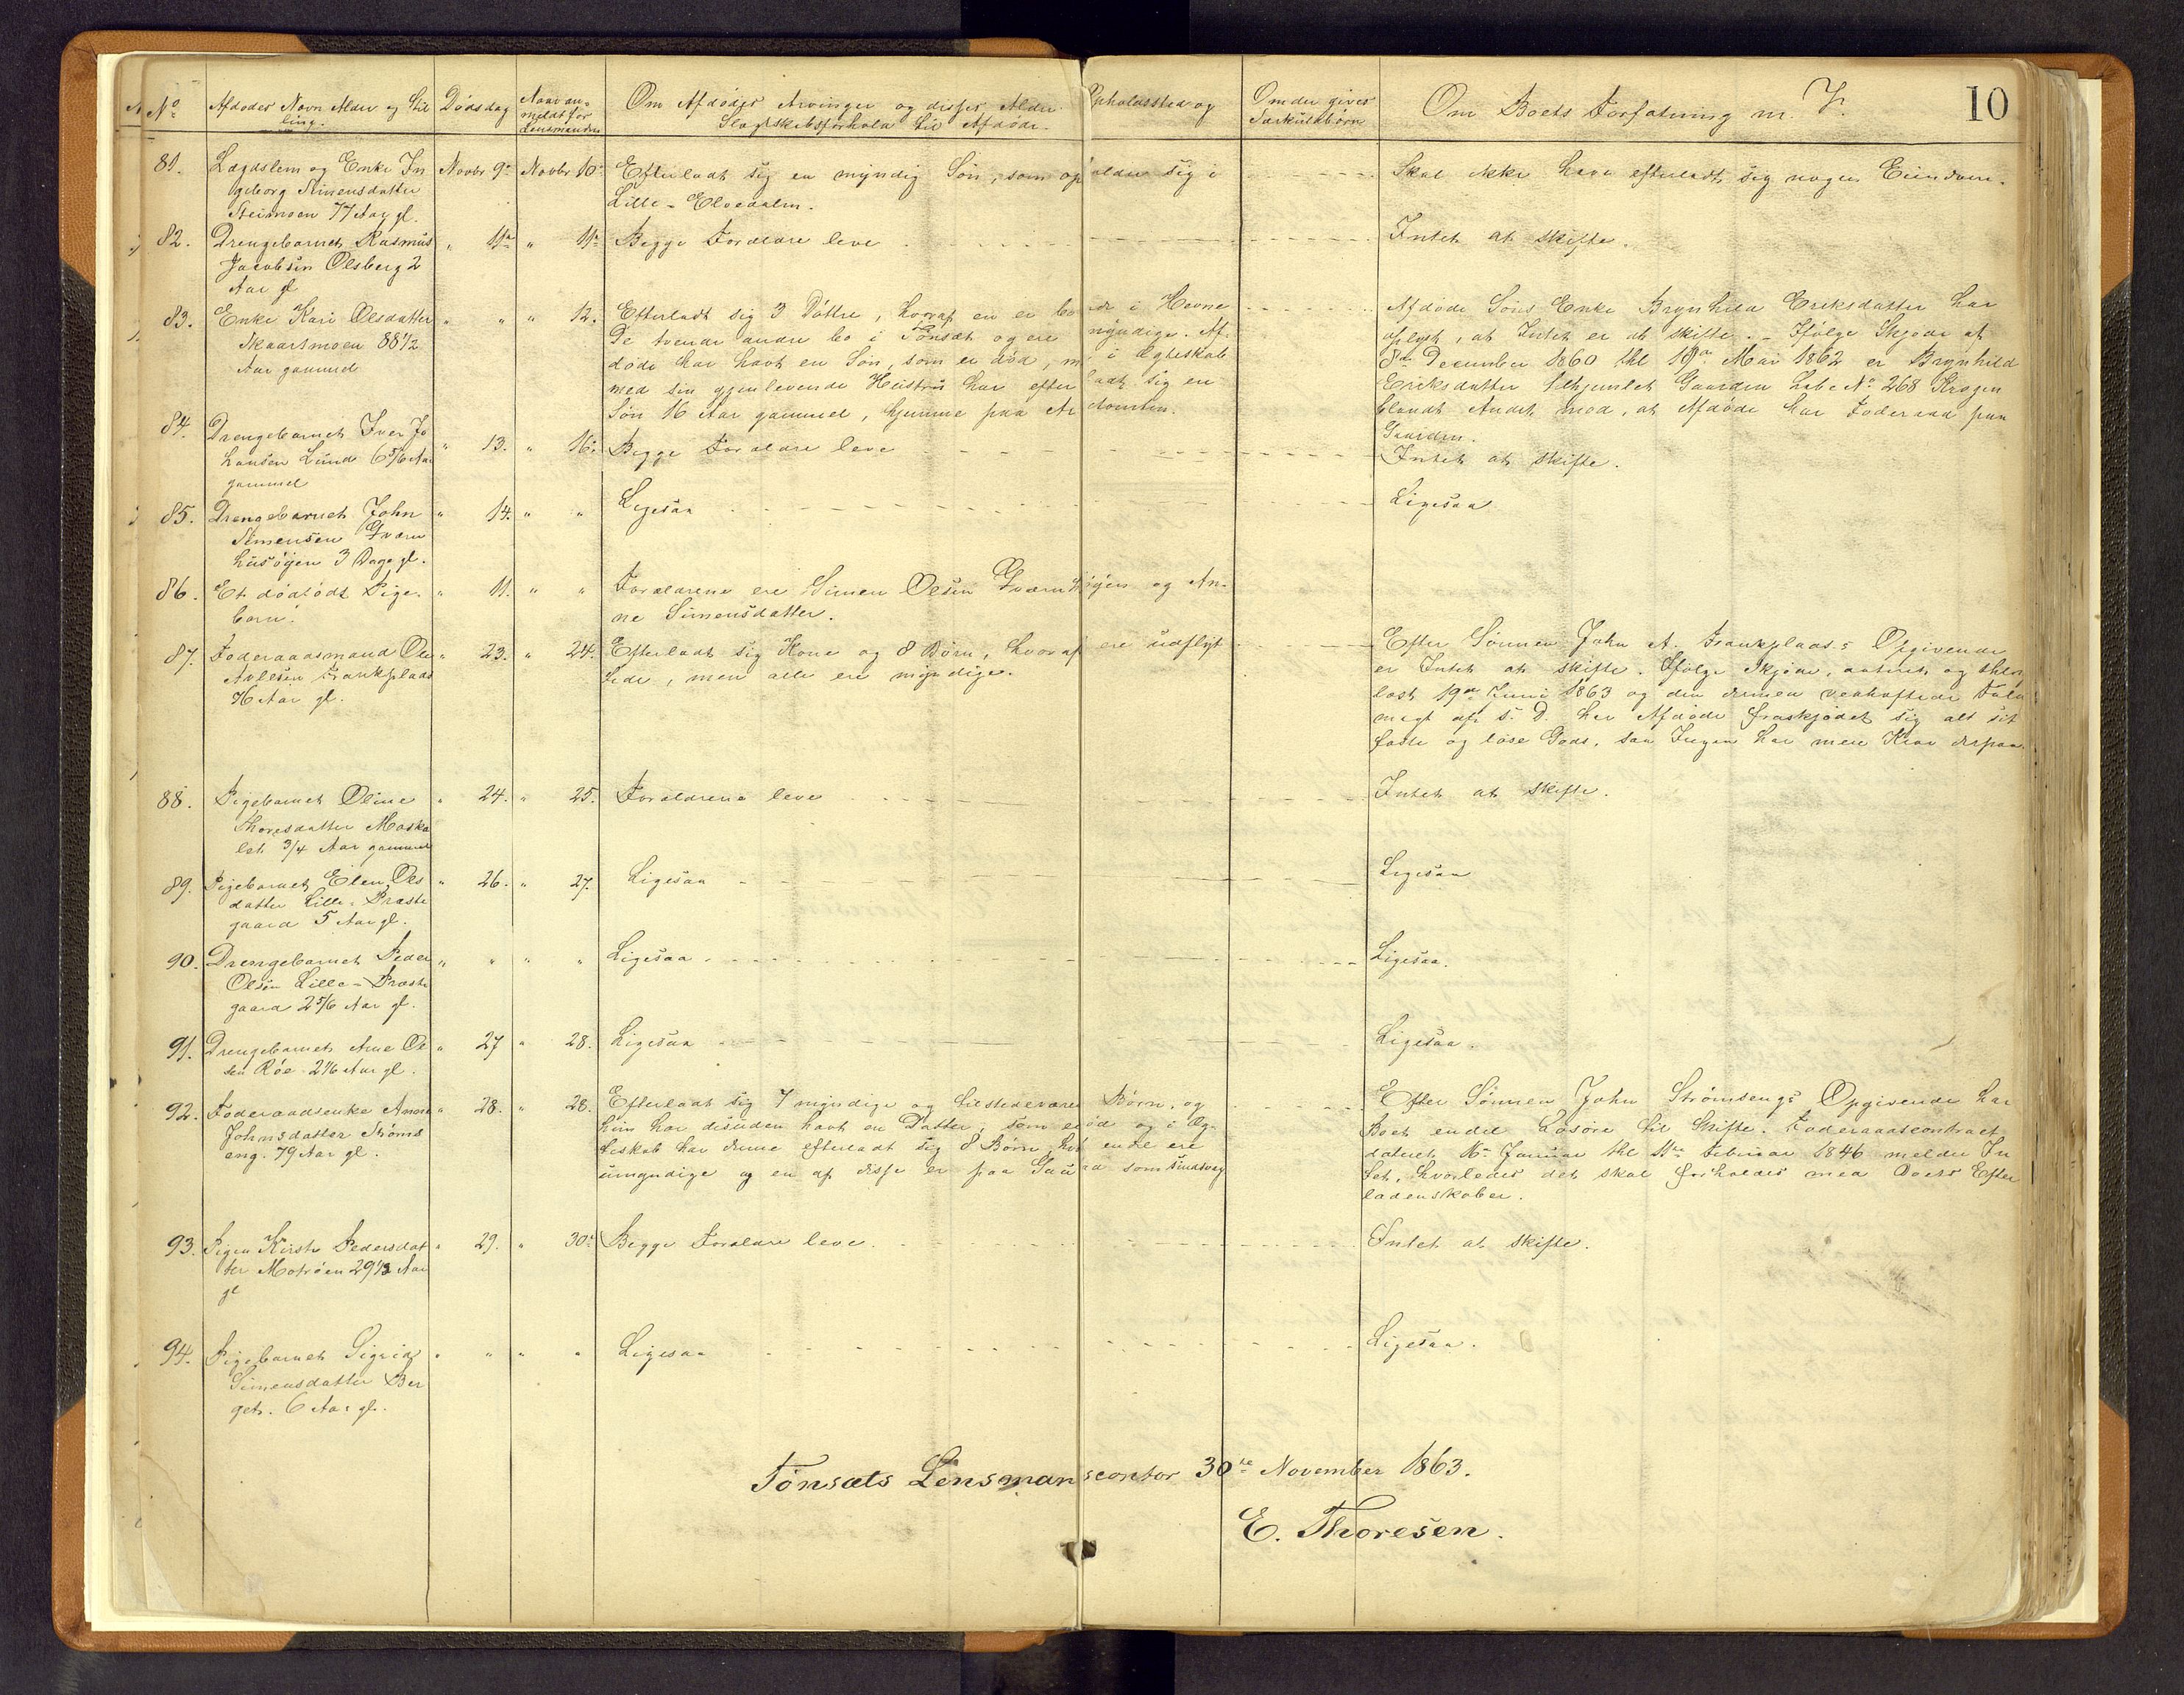 10
No Afdødes Navn Alder og Stil Dødsdag Naar an- Om Afdødes Arvinger og disses Alder Opholdssted og Om der gives Om Boets Forfatning m. V.
ling. meldt for Slægtskabsforhold til Afdøde. Særkuldbørn
Lensmanden
81. Lægdslem og Enke In Novbr 9de Novbr 10de Efterladt sig en myndig Søn, som opholder sig i Skal ikke have efterladt sig nogen Eiendom.
geborg Simensdatter Lille-Elvedalen.
Steimoen 77 Aar gl.
82. Drengebarnet Rasmus " 11te " 11te Begge Forældre leve Intet at skifte.
Jacobsen Olsberg 2
Aar gl
83. Enke Kari Olsdatter " " " 12. Efterladt sig 3 Døttre, hvoraf en er boende i Hevne Afdødes Søns Enke Brynhild Eriksdatter har
Skaartmoen 88 1/2 De tvende andre bo i Tønsæt og ere myndige. Af- oplyst, at Intet er at skifte. - Ifølge Skjøde af
Aar gammel døde har havt en Søn, som er død, men i Egteskab 8de December 1860 thl 19de Mai 1862 er Brynhild
med sin gjenlevende Hustru har efterladt sig en Eriksdatter tilhjemlet Gaarden Labe No 268 Krogen
Søn 16 Aar gammel, hjemme paa Arvetomten. blandt Andet mod, at Afdøde har Foderaad paa
Gaarden.
84. Drengebarnet Iver Jo " 13. " 16de Begge Forældre leve Intet at skifte.
hansen Lund 6 5/6 Aar
gammel
85. Drengebarnet John " 14. " " Ligesaa Ligesaa
Simensen Qværn
husøyen 3 Dage gl.
86. Et dødfødt Pige- " 11. " " Forældrene ere Simen Olsen Qværnhusøyen og An-
barn. ne Simensdatter.
87. Foderaadsmand Ole " 23. " 24. Efterladt sig Kone og 8 Børn, hvoraf ere udflyt Efter Sønnen John A. Frankplads's Opgivende
Avlesen Frankplads tede, men alle ere myndige. er Intet at skifte. Ifølge Skjøde, dateret og thin
76 Aar gl. læst 19de Juni 1863 og den dermed vedhæftede Fuld
magt af s. D. har Afdøde fraskjødet sig alt sit
faste og løse Gods, saa Ingen har mere Krav derpaa.
88. Pigebarnet Oline " 24. " 25. Forældrene leve Intet at skifte.
Thoresdatter Moska
let 3/4 Aar gammel
89. Pigebarnet Elen Ols " 26. " 27. Ligesaa Ligesaa
datter Lille-Præste
gaard 5 Aar gl.
90. Drengebarnet Peder " " " " Ligesaa Ligesaa.
Olsen Lille-Præste
gaard 2 5/6 Aar gl.
91. Drengebarnet Arne Ol " 27 " 28. Ligesaa Ligesaa.
sen Røe 2 1/6 Aar gl.
92. Foderaadsenke Anne " 28. " 28. Efterladt sig 7 myndige og tilstedeværende Børn, og Efter Sønnen John Strømsengs Opgivende har
Johnsdatter Strøms hun har desuden havt en Datter, som er død og i Eg- Boet endel Løsøre til Skifte. Foderaadscontract
eng. 79 Aar gl. teskab har denne efterladt sig 8 Børn, hvoraf endel ere dateret 16de Januar thl 11te Februar 1846 melder In
umyndige og en af disse er paa Gaard som sindsvag tet, hvorledes det skal forholdes med Boets Efter
ladenskaber.
93. Pigen Kirsti Pedersdat " 29. " 30te Begge Forældre leve. Intet at skifte.
ter Motrøen 29 1/3 Aar
gl
94. Pigebarnet Sigrid " " " " Ligesaa Ligesaa.
Simensdatter Ber
get. 6 Aar gl.
Tønsæts Lensmanscontor 30te November 1863.
E. Thoresen.